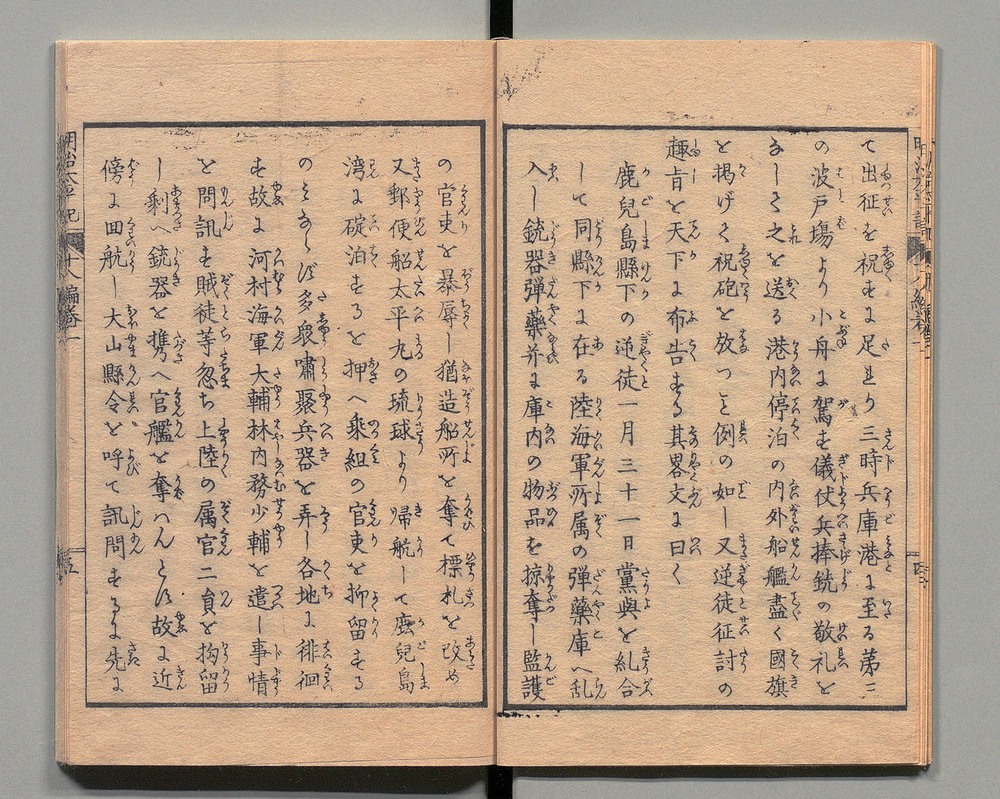 て出征を祝すに足れり三時兵庫港に至る第三
の波戸場より小舟に駕す儀仗兵捧銃の敬礼を
なして之を送る港内停泊の内外船艦盡く國旗
を掲げて祝砲を放つこと例の如し又逆徒征討の
趣旨を天下に布告する其畧文に曰く
鹿兒島縣下の逆徒一月三十一日黨與を糺合
して同縣下に在る陸海軍所属の弾藥庫へ乱
入し銃器弾藥并に庫内の物品を掠奪し監護
の官吏を暴辱し猶造船所を奪て標札を改め
又郵便船太平丸の琉球より帰航して鹿兒島
湾に碇泊するを押へ乗組の官吏を抑留する
のみならず多衆嘯聚兵器を弄し各地に徘徊
す故に河村海軍大輔林内務少輔を遣し事情
を問訊す賊徒等忽ち上陸の属官二員を拘留
し剰へ銃器を携へ官艦を奪はんとす故に近
傍に回航し大山縣令を呼て訊問するに先に
明治太平記
十八編巻一
五